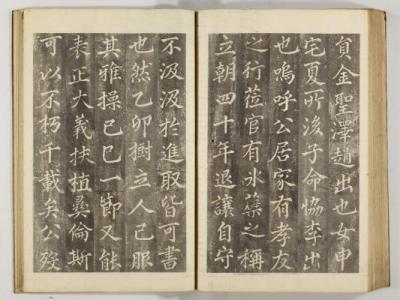 貟金聖澤蒩出也女申
宅夏所後子命恊李出
也嗚呼公居家有孝友
之行莅官有氷蘗之稱
立朝四十年退讓自守
不汲汲於進取皆可書
也然乙卯樹立人已服
其雅操己巳一節又能
表正大義扶植彛倫斯
可以不朽千載矣公歿